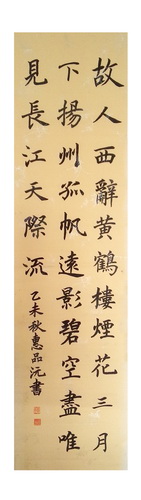 故人西辭黄鶴樓煙花三月
下揚州孤帆遠影碧空盡唯
見長江天際流
乙未秋惠品沅書